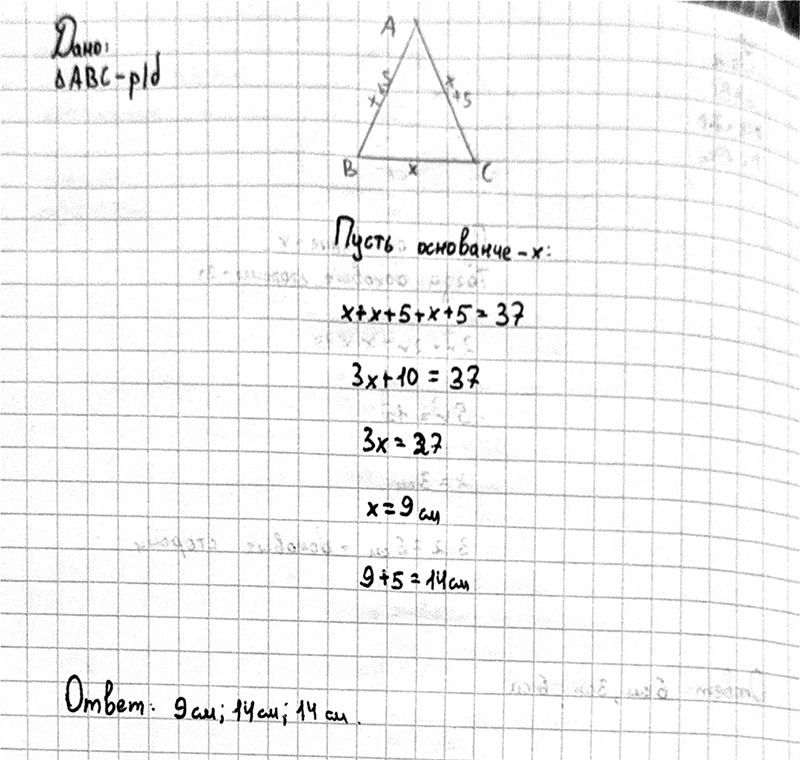 Дано:
ΔABC - р/б
A
x+5
x+5
B
x
C
Пусть основание - x:
x+x+5+x+5=37
3x+10=37
3x=27
x=9см
9+5=14см
Ответ: 9см; 14см; 14см.